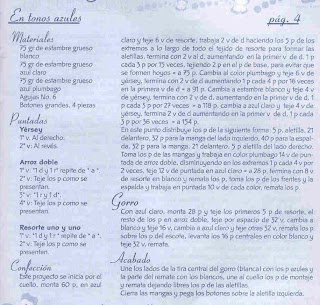 En tonos azules
pág. 4
Materiales
75 gr de estambre grueso
blanco
75 gr de estambre grueso
azul claro
75 gr de estambre grueso
azul plumbago
Agujas Nº 6
Botones grandes, 4 piezas
Puntadas
Yérsey
1ª v: Al derecho.
2ª v: Al revés.
Arroz doble
1ª v: *1 d y 1 r* repite de * a *.
2ª v: Teje los p como se
presentan.
3ª v: *1 r y 1 d*.
4ª v: Teje los p como se
presentan.
Resorte uno y uno
1ª v: *1 d y 1 r* repite de * a *.
2ª v: Teje los p como se
presentan.
Confección
Este proyecto se inicia por el
cuello, monta 60 p, en azul
claro y teje 6 v de resorte. trabaja 2 v de d haciendo los 5 p de los
extremos a lo largo de todo el tejido de resorte para formar las
aletillas, termina con 2 v al d, aumentando en la primer v de d, 1 p
cada 3 p por 15 veces, tejiendo 2 p en el p de base, para evitar que
se formen hoyos = a 75 p. Cambia al color plumbago y teje 6 v de
yérsey, termina con 2 v de d aumentando 1 p cada 4 p por 16 veces
en la primera v de d = a 91 p. Cambia a estambre blanco y teje 4 v
de yérsey, termina con 2 v de d, aumentando en la primer v de d, 1
p cada 3 p por 27 veces = a 118 p, cambia a azul claro y teje 4 v de
yérsey, termina con 2 v de d aumentando en la primer v de d, 1 p cada
3 p por 36 veces = a 154 p.
En este punto distribuye los p de la siguiente forma: 5 p. aletilla, 21
delantero, 32 p para la manga del lado izquierdo, 40 p para la espal-
da, 32 p para la manga, 21 delantero, 5 p aletilla del lado derecho.
Toma los p de las mangas y trabaja en color plumbago 14 v de pun-
tada de arroz doble, disminuyendo en los extremos 1 p cada 4 v por 2
veces, teje 12 v de puntada en azul claro = a 28 p, termina con 8 v
de resorte en blanco y remata los p, toma los p de los frentes y la
espalda y trabaja en puntada 10 v de cada color, remata los p.
Gorro
Con azul claro, monta 28 p y teje los primeros 5 p de resorte, el
resto de los p en arroz doble, teje por espacio de 32 v, cambia a
blanco y teje 16 v, cambia a azul claro y teje otras 32 v, remata los p
sobre los p del escote, levanta los 16 p centrales en color blanco y
teje 32 v, remata.
Acabado
Une los lados de la tira central del gorro (blanca) con los p azules y
la parte del remate con los blancos, une al cuello los p de montaje
y remata dejando libres los p de las aletillas.
Cierra las mangas y pega los botones sobre la aletilla izquierda.